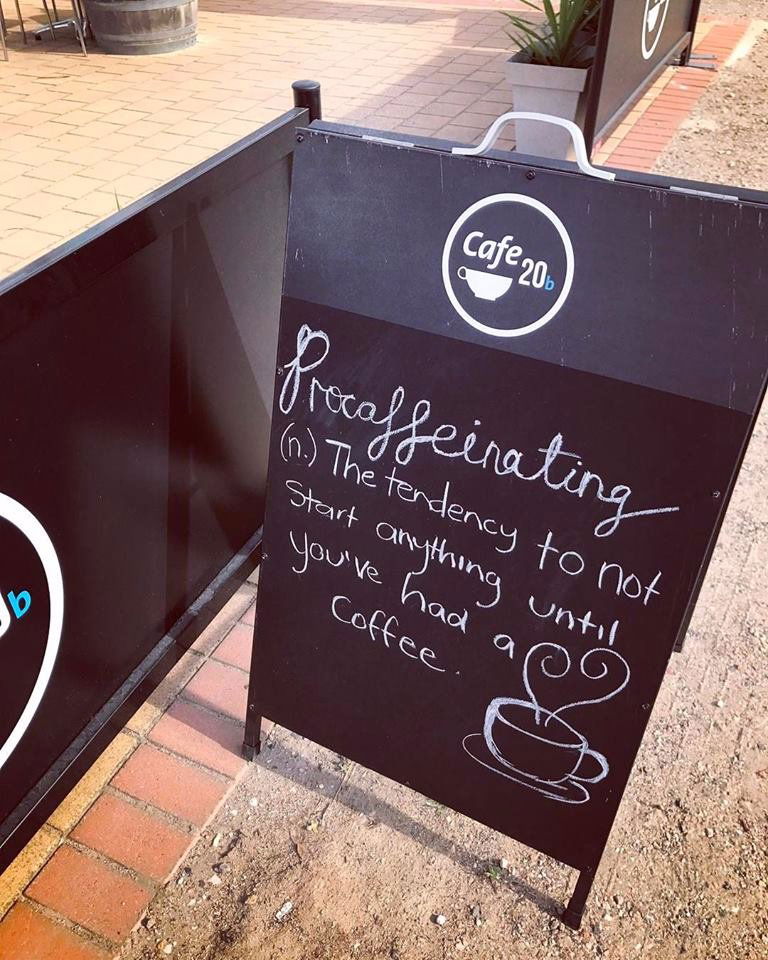 Cafe
20b
Procaffeinating
(n.) The tendency to not
Start anything until
you've had a
Coffee.
b